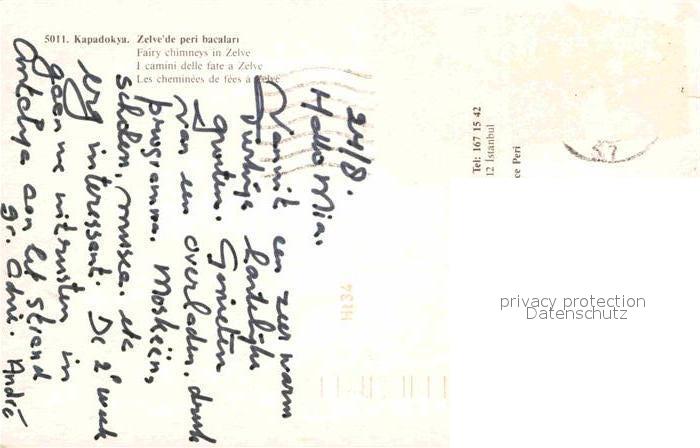 5011. Kapadokya. Zelve'de peri bacaları
Fairy chimneys in Zelve
I camini delle fate a Zelve
Les cheminées de fées à Zelve
24/8.
Hallo Mia.
Vanuit een zeer warm
Turkije hartelijke
groeten. Genieten
van een overladen, druk
programma. Moskeën,
musea. etc
erg interessant. De 2e week
gaan we uitrusten in
Antalya aan het strand
gr. André
Tel: 167 15 42
12 İstanbul
ce Peri
Ht34
privacy protection
Datenschutz